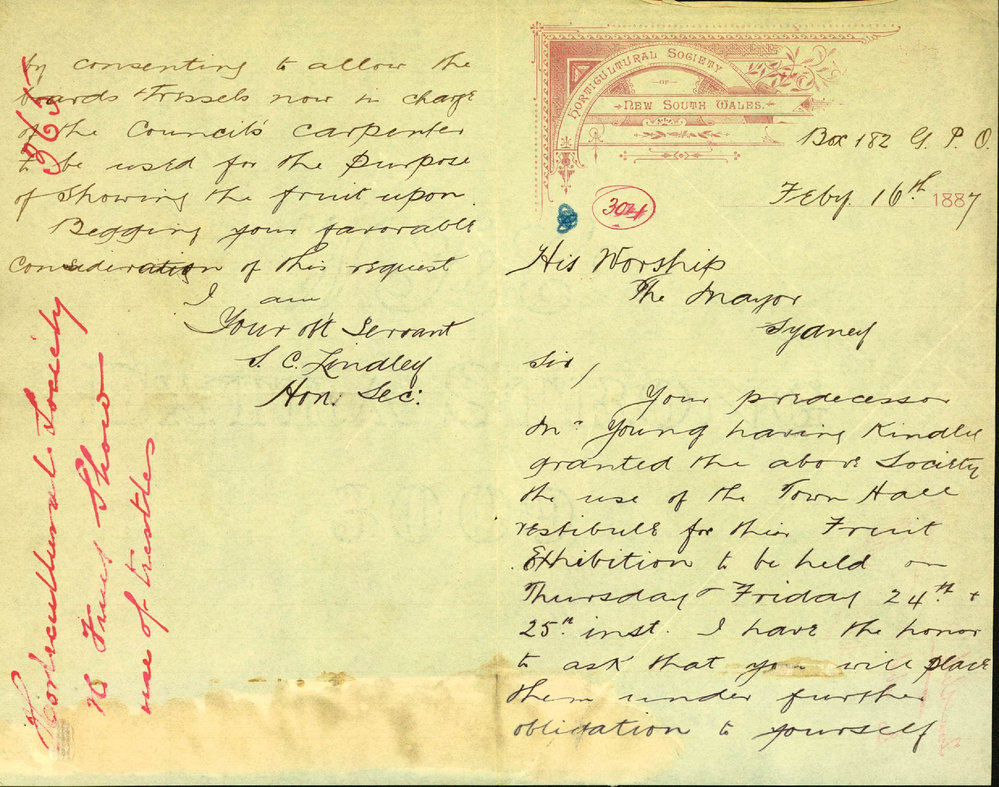 HORTICULTURAL SOCIETY
OF
NEW SOUTH WALES.
Box 182 G. P. O.
Feby. 16th 1887
304
His Worship
The Mayor
Sydney
Sir,
Your predecessor
Mr Young having Kindly
granted the above Society
the use of the Town Hall
vestibule for their Fruit
Exhibition to be held on
Thursday & Friday 24th &
25th inst. I have the honor
to ask that you will place
them under further
obligation to yourself
by consenting to allow the
boards & Tressels now in charge
of the Council's carpenter
to be used for the purpose
of Showing the fruit upon.
Begging your favorable
consideration of this request
I am
Your obt Servant
S. C. Lindley
Hon. Sec:
365
Horticultural Society
Fruit Show
use of trestles